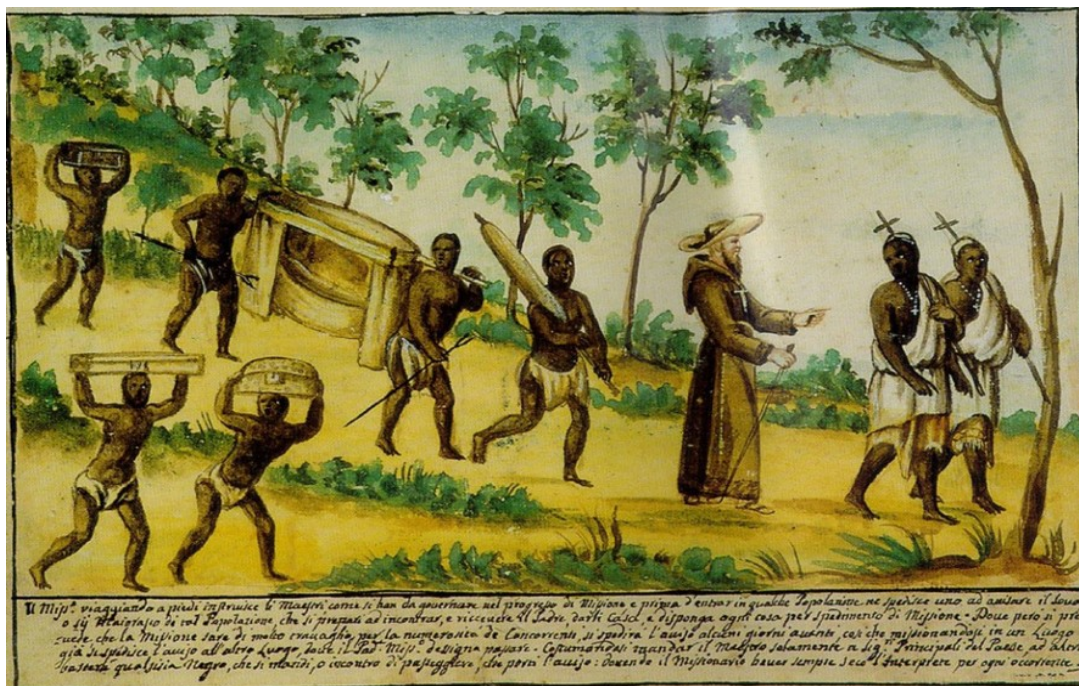 Il Miss.º viaggiando a piedi instruisce li Maestri come si han da governare nel progresso di Missione e prima d'entrar in qualche Popolazione ne spedisce uno ad avisare il
o sij di tal Popolazione, che si prepari ad incontrar, e ricevere il Padre, darli Casa, e disponga ogni cosa per spedimento di Missione. Dove però si pre
vede che la Missione sarà di molto travaglio, per la numerosità de Concorrenti, si spedirà l'aviso alcuni giorni avanti, così che missionandosi in un Luogo
già si spedisce l'aviso all'altro Luogo, dove il Pad. Miss. designa passare. Costumandosi mandar il Maestro solamente a Sig. Principali del Paese, ad altri
basterà qualsisia Negro, che si mandi, o incontro di passeggiere, che porti l'aviso: Dovendo il Missionario haver sempre seco l'Interprete per ogni occorrente